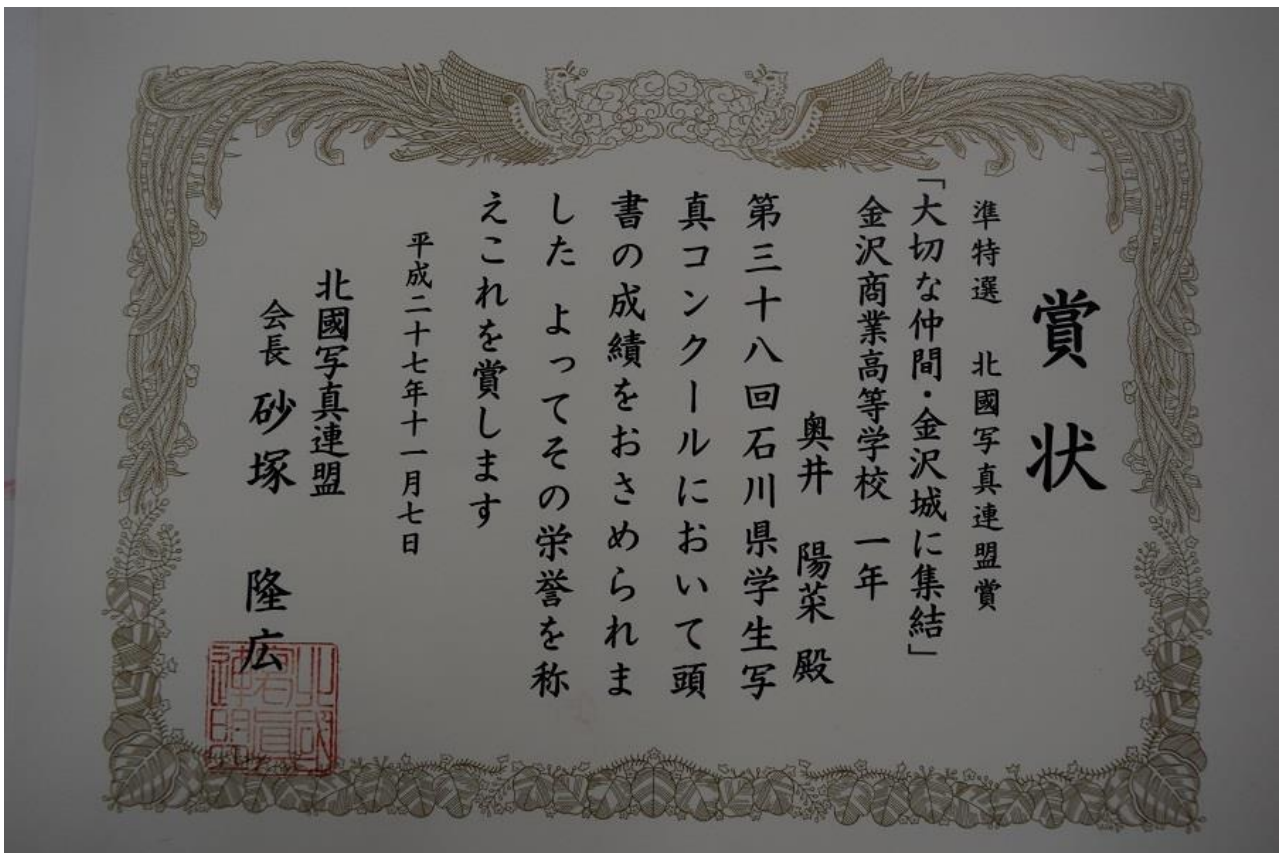 賞状
準特選 北國写真連盟賞
「大切な仲間・金沢城に集結」
金沢商業高等学校 一年
奥井 陽菜 殿
第三十八回石川県学生写
真コンクールにおいて頭
書の成績をおさめられま
した よってその栄誉を称
えこれを賞します
平成二十七年十一月七日
北國写真連盟
会長 砂塚 隆広